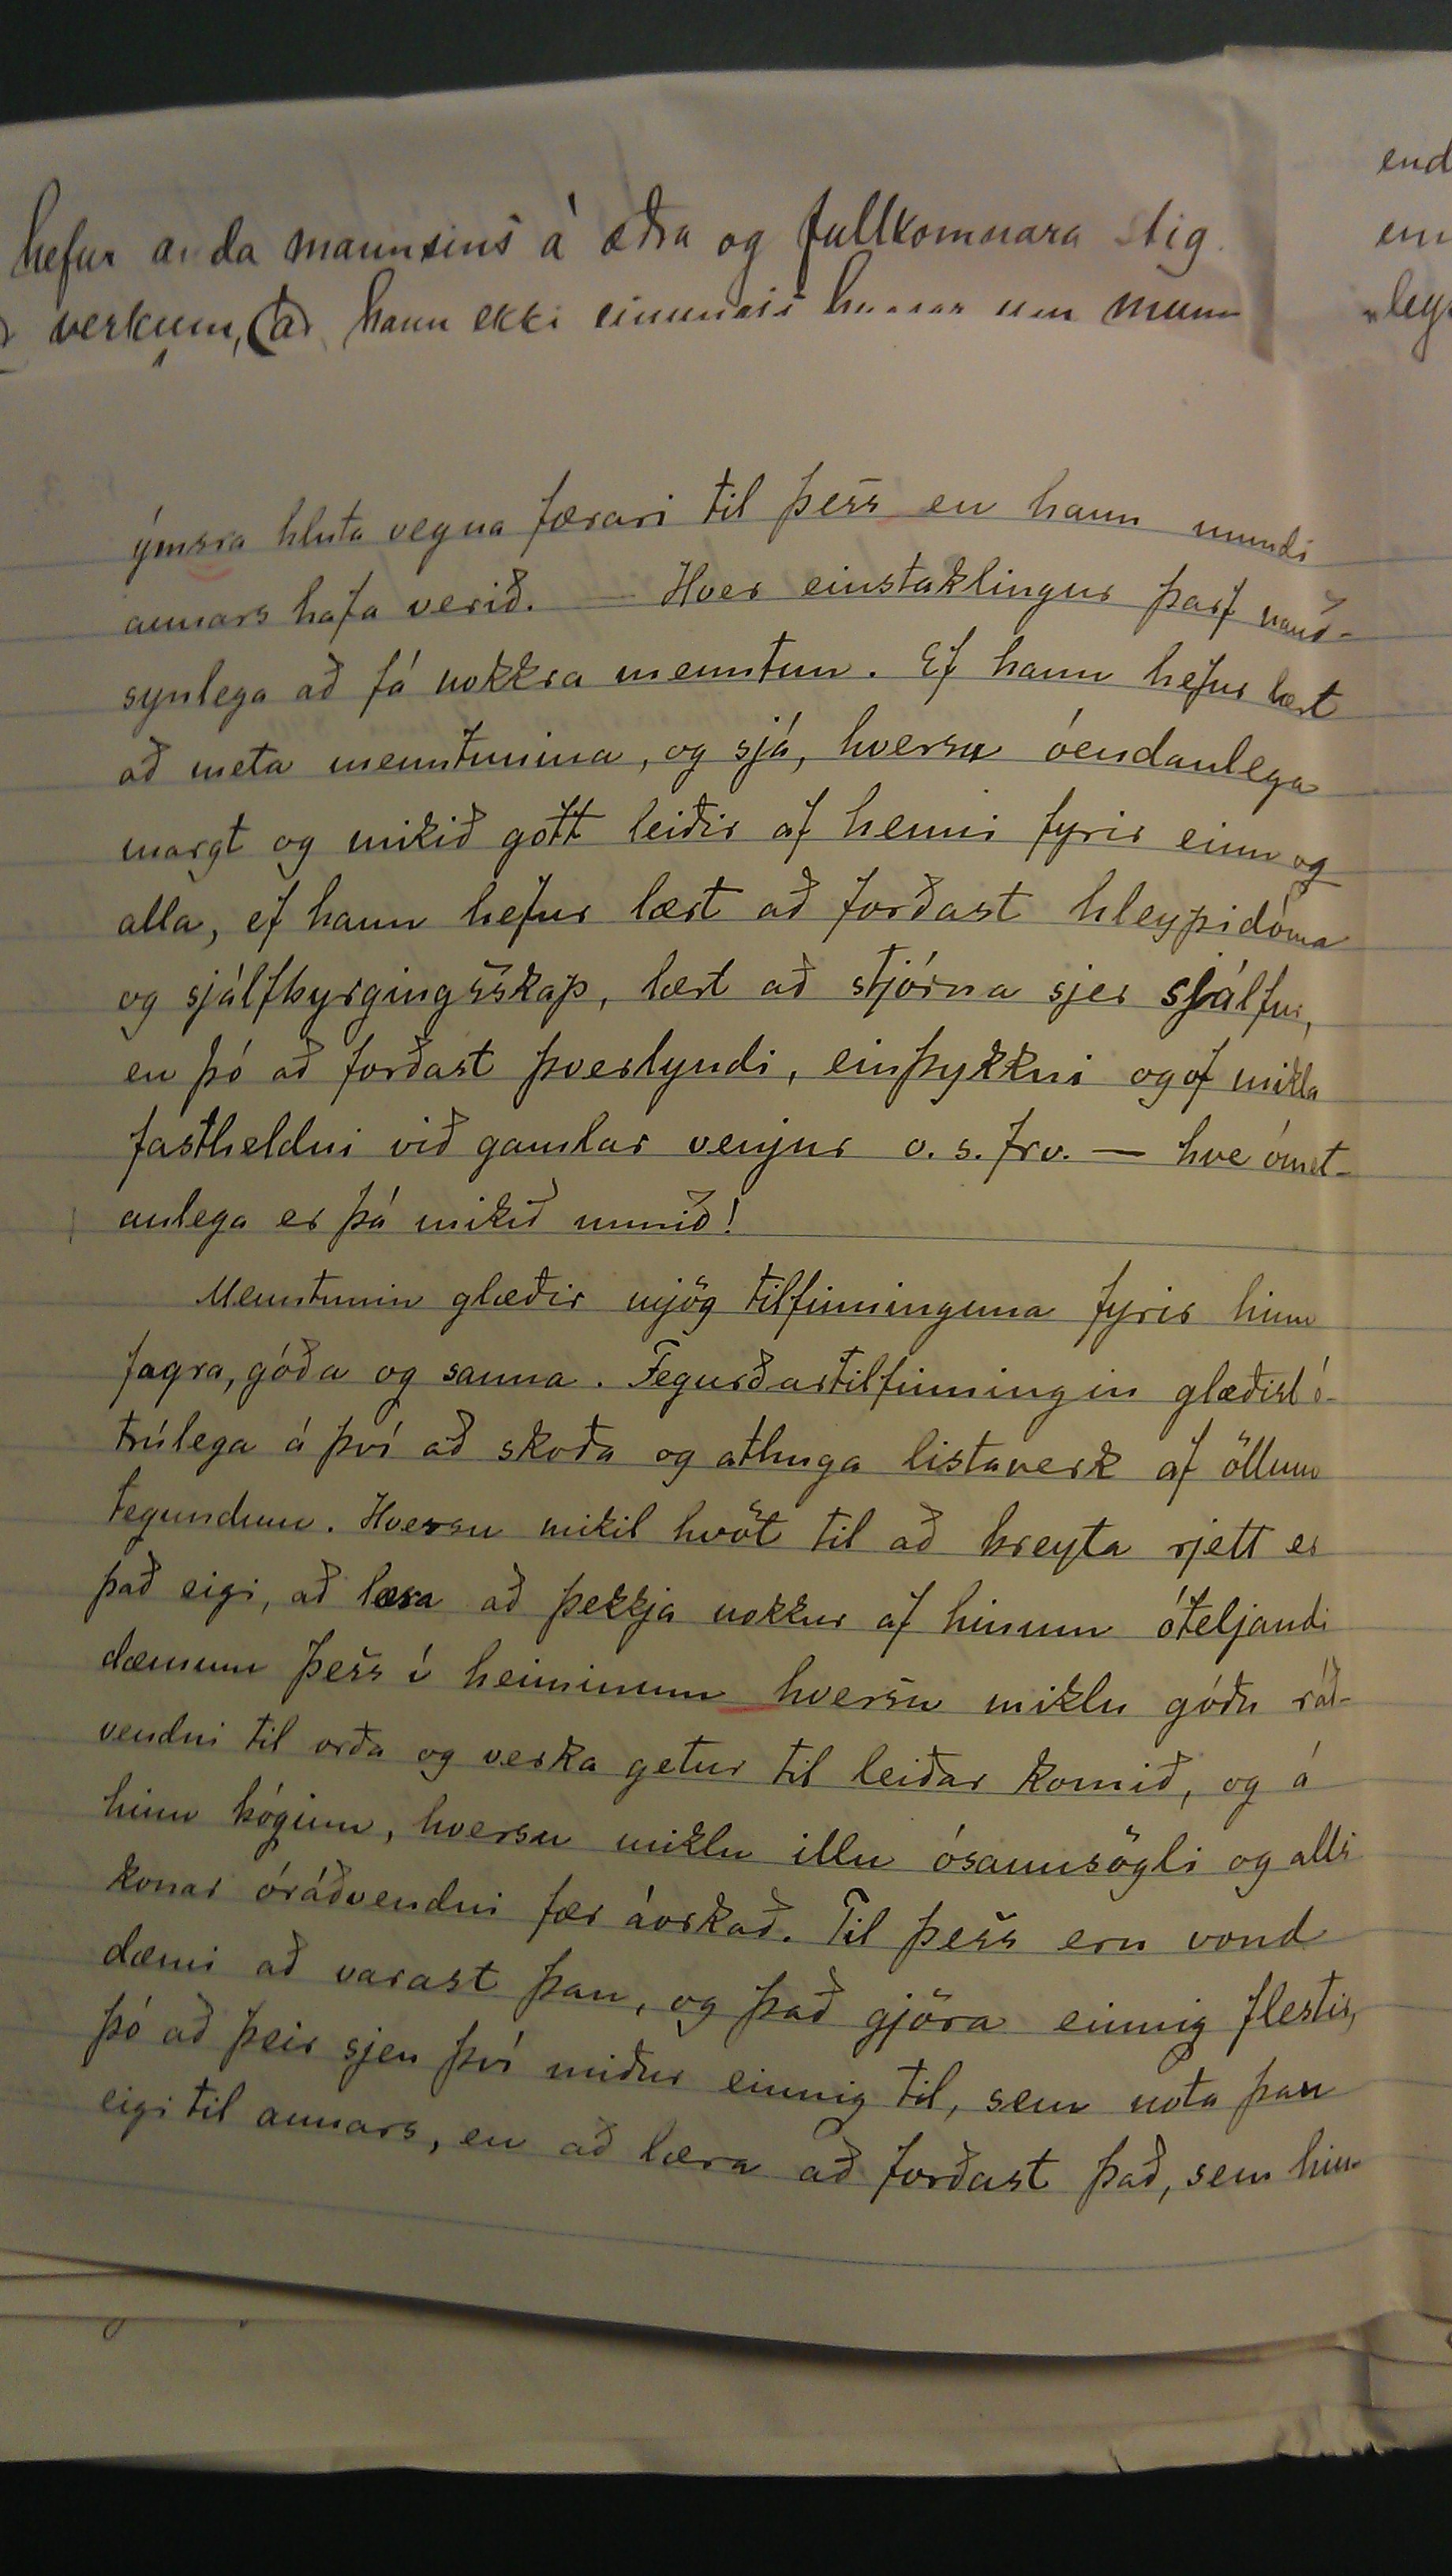 hefur anda mannsins á æðra og fullkomnara stig.
verkum, (að) hann ekki einungis hugsar um munn
end
em
leg
ýmsra hluta vegna færari til þess en hann mundi
annars hafa verið. — Hver einstaklingur þarf nauð-
synlega að fá nokkra menntun. Ef hann hefur lært
að meta menntunina, og sjá, hversu óendanlega
margt og mikið gott leiðir af henni fyrir einn og
alla, ef hann hefur lært að forðast hleypidóma
og sjálfbyrgingsskap, lært að stjórna sjer sjálfur,
en þó að forðast þverlyndi, einþykkni og of mikla
fastheldni við gamlar venjur o. s. frv. — hve ómet-
anlega er þá mikið unnið!
Menntunin glæðir mjög tilfinninguna fyrir hinu
fagra, góða og sanna. Fegurðartilfinningin glæðist ó-
trúlega á því að skoða og athuga listaverk af öllum
tegundum. Hversu mikil hvöt til að breyta rjett er
það eigi, að læra að þekkja nokkur af hinum óteljandi
dæmum þess í heiminum hversu miklu góðu ráð-
vendni til orða og verka getur til leiðar komið, og á
hinn bóginn, hversu miklu illu ósannsögli og alls
konar óráðvendni fær áorkað. Til þess eru vond
dæmi að varast þau, og það gjöra einnig flestir,
þó að þeir sjeu því miður einnig til, sem nota þau
eigi til annars, en að læra að forðast það, sem hin-